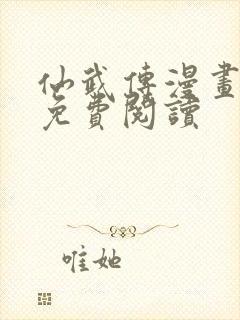 仙武傳漫畫
免費閱讀
唯她